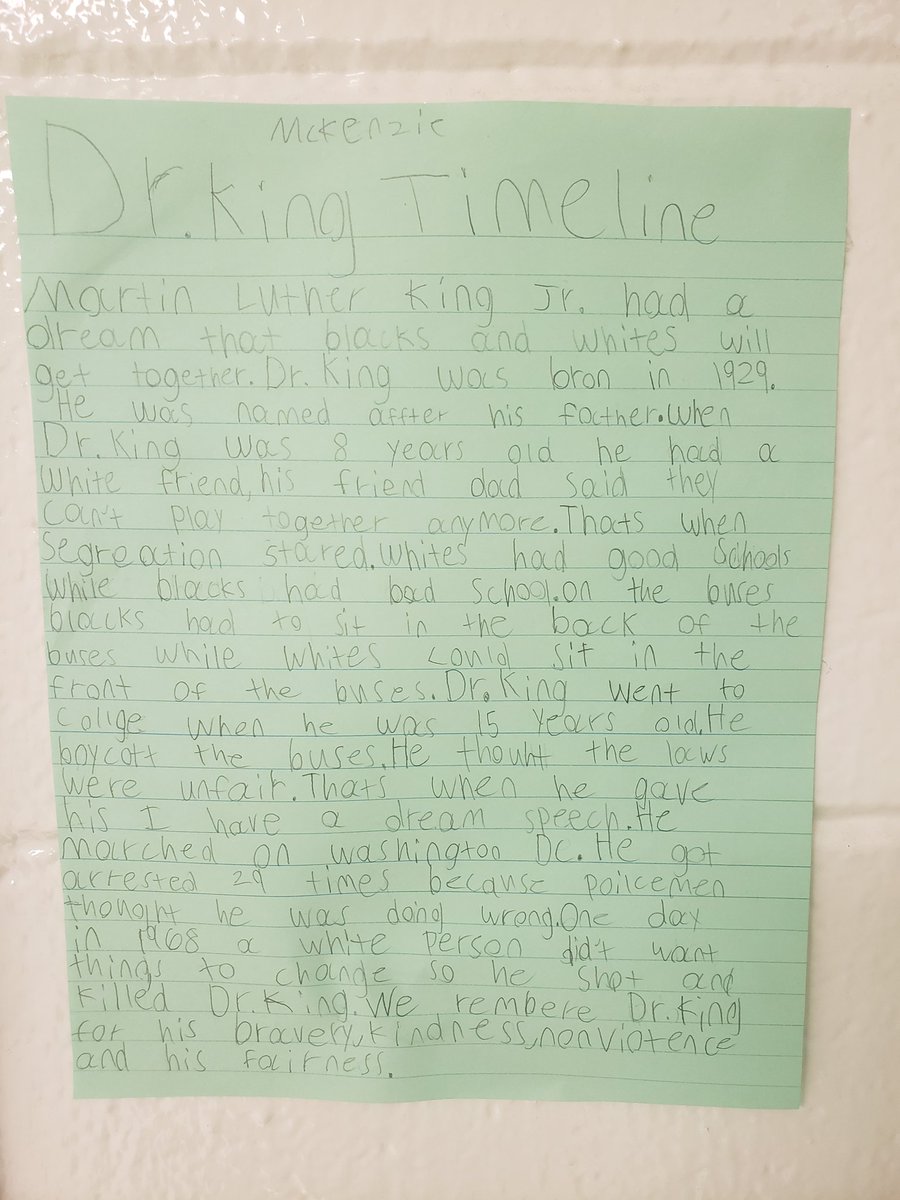 McKenzie
Dr. King Timeline
Martin Luther King Jr. had a
dream that blacks and whites will
get together. Dr. King was bron in 1929.
He was named affter his father. When
Dr. King was 8 years old he had a
white friend, his friend dad said they
can't play together anymore. Thats when
segreation stared. whites had good schools
while blacks had bad school. on the buses
blacks had to sit in the back of the
buses while whites could sit in the
front of the buses. Dr. King went to
collge when he was 15 years old. He
boycott the buses. He thouht the laws
were unfair. Thats when he gave
his I have a dream speech. He
marched on washington Dc. He got
arrested 29 times because poilcemen
thought he was doing wrong. One day
in 1968 a white person did't want
things to change so he shot and
killed Dr. King. We rembere Dr. King
for his bravery, kindness, nonviotence
and his fairness.